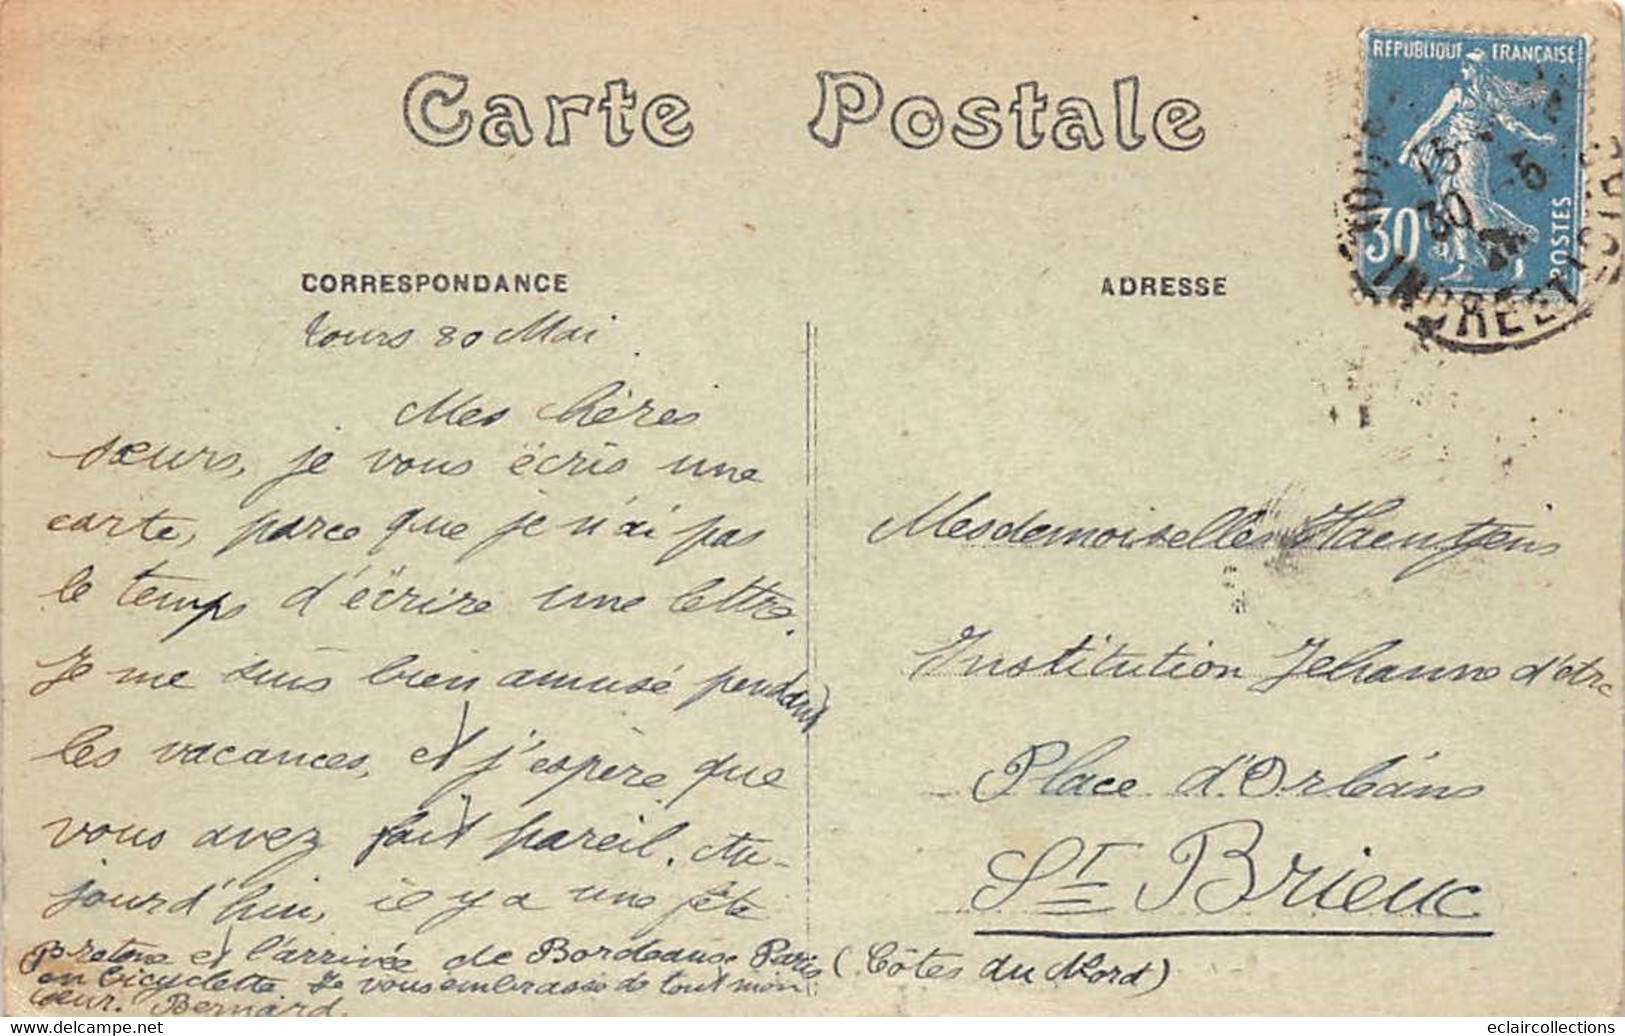 Carte Postale
REPUBLIQUE FRANÇAISE
30
POSTES
15
30
INDRE ET
CORRESPONDANCE
Tours 30 Mai
Mes Chères
sœurs, je vous écris une
carte, parce que je n'ai pas
le temps d'écrire une lettre.
Je me suis bien amusé pendant
les vacances, et j'espère que
vous avez fait pareil. Au-
jourd'hui, il y a une fête
Bretone et l'arrivée de Bordeaux Paris
en bicyclette Je vous embrasse de tout mon
cœur. Bernard.
ADRESSE
Mesdemoiselles Haentjens
Institution Jehanne d'Arc
Place d'Orléans
St Brieuc
(Côtes du Nord)
eclaircollections